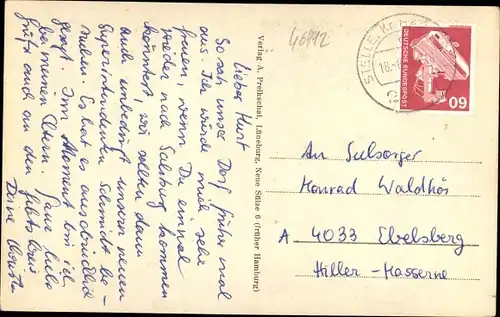 Lieber Kurt
So sah unser Dorf früher mal
aus. Ich würde mich sehr
freuen, wenn Du einmal
wieder nach Salzburg kommen
könntest wir sollten dann
auch unbedingt unseren neuen
Superintendenten Schmidt be-
suchen. Es hat es ausdrücklich
gesagt. Im Moment bin ich
bei meinen Eltern. Ganz liebe
Grüße auch an den
Deine
Verlag A. Preikschat, Lüneburg, Neue Sülze 6 (früher Hamburg)
46442
STELLE, KR HAR
18.
DEUTSCHE BUNDESPOST
60
An Seelsorger
Konrad Waldhör
A 4033 Ebelsberg
Hiller-Kaserne